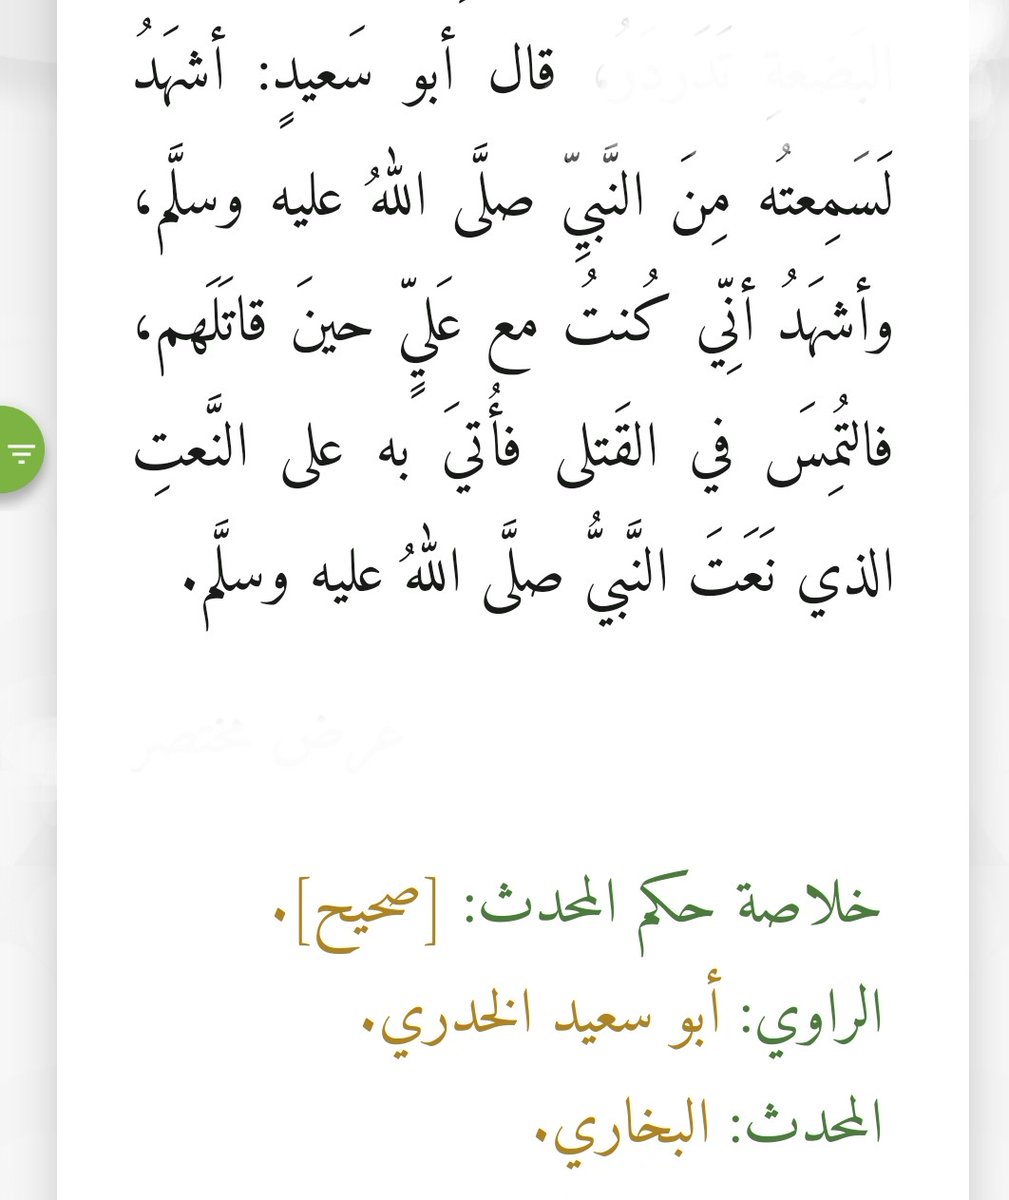 البَضعةِ تَدَردَرُ، قال أبو سَعيدٍ: أشهَدُ
لَسَمِعتُه مِنَ النَّبيِّ صلَّى اللهُ عليه وسلَّم،
وأشهَدُ أنِّي كُنتُ مع عَليٍّ حينَ قاتَلَهم،
فالتُمِسَ في القَتلى فأُتيَ به على النَّعتِ
الذي نَعَتَ النَّبيُّ صلَّى اللهُ عليه وسلَّم.
عرض مختصر
خلاصة حكم المحدث: [صحيح].
الراوي: أبو سعيد الخدري.
المحدث: البخاري.